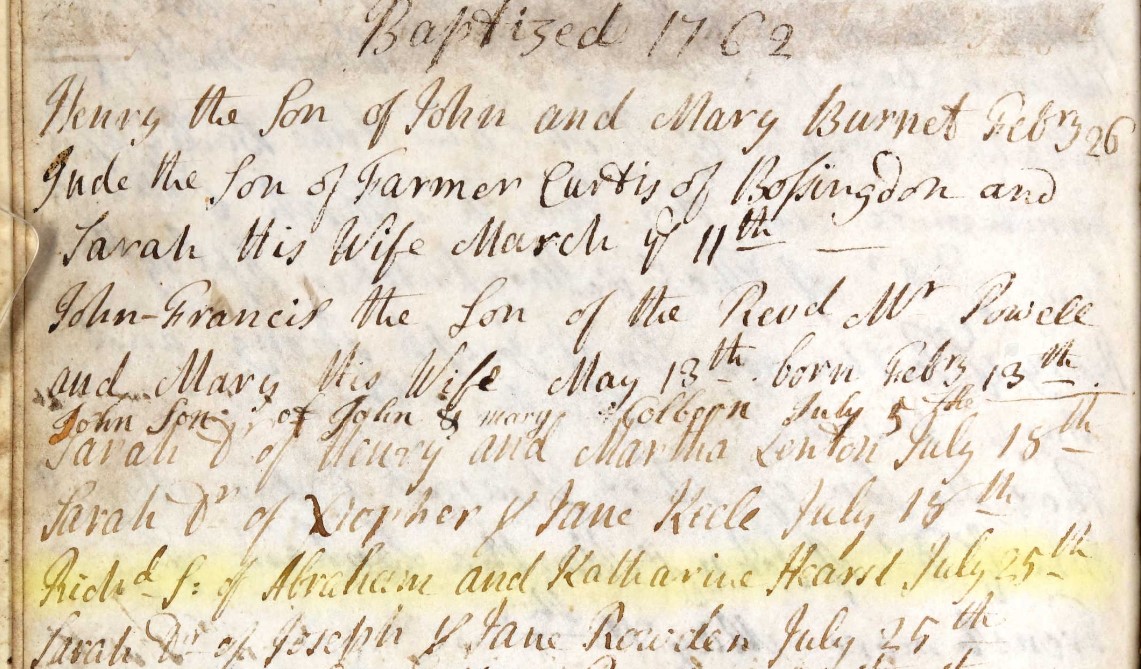 Baptized 1762
Henry the Son of John and Mary Burnet Febry 26
Jude the Son of Farmer Curtis of Bossingdon and
Sarah His Wife March ye 11th
John-Francis the Son of the Revd Mr Powell
and Mary His Wife May 13th born Febry 13th
John Son of John & mary Colborn July 5 the
Sarah D of Henry and Martha Lenton July 18th
Sarah Dr of Xtopher & Jane Keele July 18th
Richd S: of Abraham and Katharine Hearst July 25th
Sarah Dr of Joseph & Jane Rowden July 25th